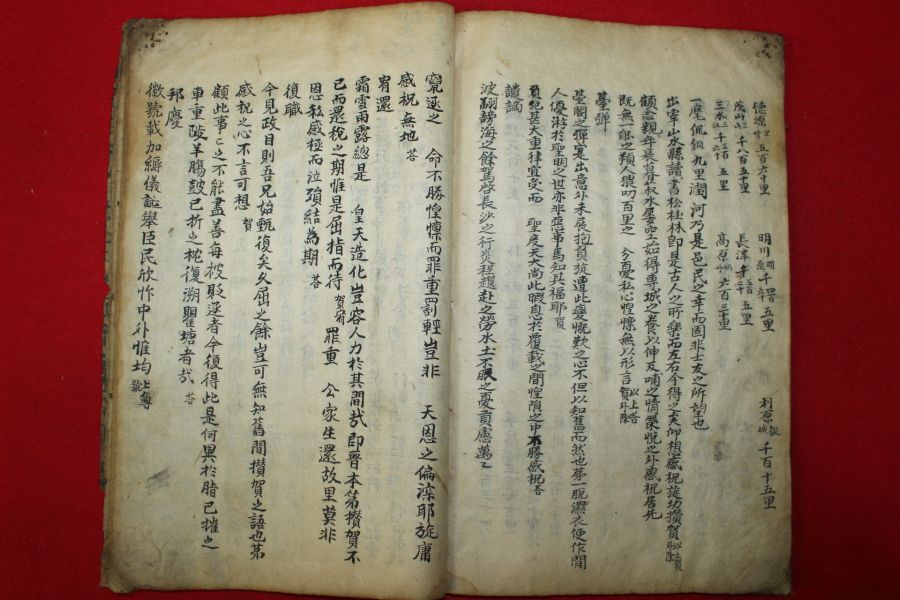 德源 五百六十里 明川 千 五里 利原 千百十五里
茂山 千八百五十里 長津 五里
三水 千 五里 高原 六百三十里
一麾佩銅九里潤河乃是邑民之幸而固非士友之所望也
出宰山水縣讀書松桂林卽是古人之所樂而左右今得之矣仰想感祝旋切攢賀
顧念親年衰暮菽水屢空如得專城之養以伸反哺之情榮悅之外感祝居先
旣無一能之猥叨百里之 今憂私心惶慄無以形言 賀外除 以上答
臺彈
臺閣之彈寔出意外未展抱負旋遭此變慨歎之心不但以知舊而然也第一脫濕衣便作閒
人優游於聖明之世亦非惡事焉知其福耶 賀
負犯甚大重律宜受而 聖度天大尙此暇息於覆載之間惶隕之中不勝感祝 答
譴謫
波翻鯨海之餘駕啓長沙之行炎程趲赴之勞水土不服之憂貢慮萬萬
竄逐之 命不勝惶懍而罪重罰輕豈非 天恩之偏深耶旋庸
感祝無地 答
宥還
霜雪雨露總是 皇天造化豈容人力於其間哉卽晉本第攢賀不
已而還稅之期惟是屈指而待 賀宥 罪重 公家生還故里莫非
恩私感極而泣頌結爲期 答
復職
今見政目則吾兄始甄復矣久屈之餘豈可無知舊間攢賀之語也第
感祝之心不言可想 賀
顧此事事之不能盡善每被駁逐者今復得此是何異於脂已摧之
車重陵羊膓鼓已折之枕復溯瞿塘者哉 答
邦慶
徽號載加縟儀諡擧臣民欣忭中外惟均 上尊號